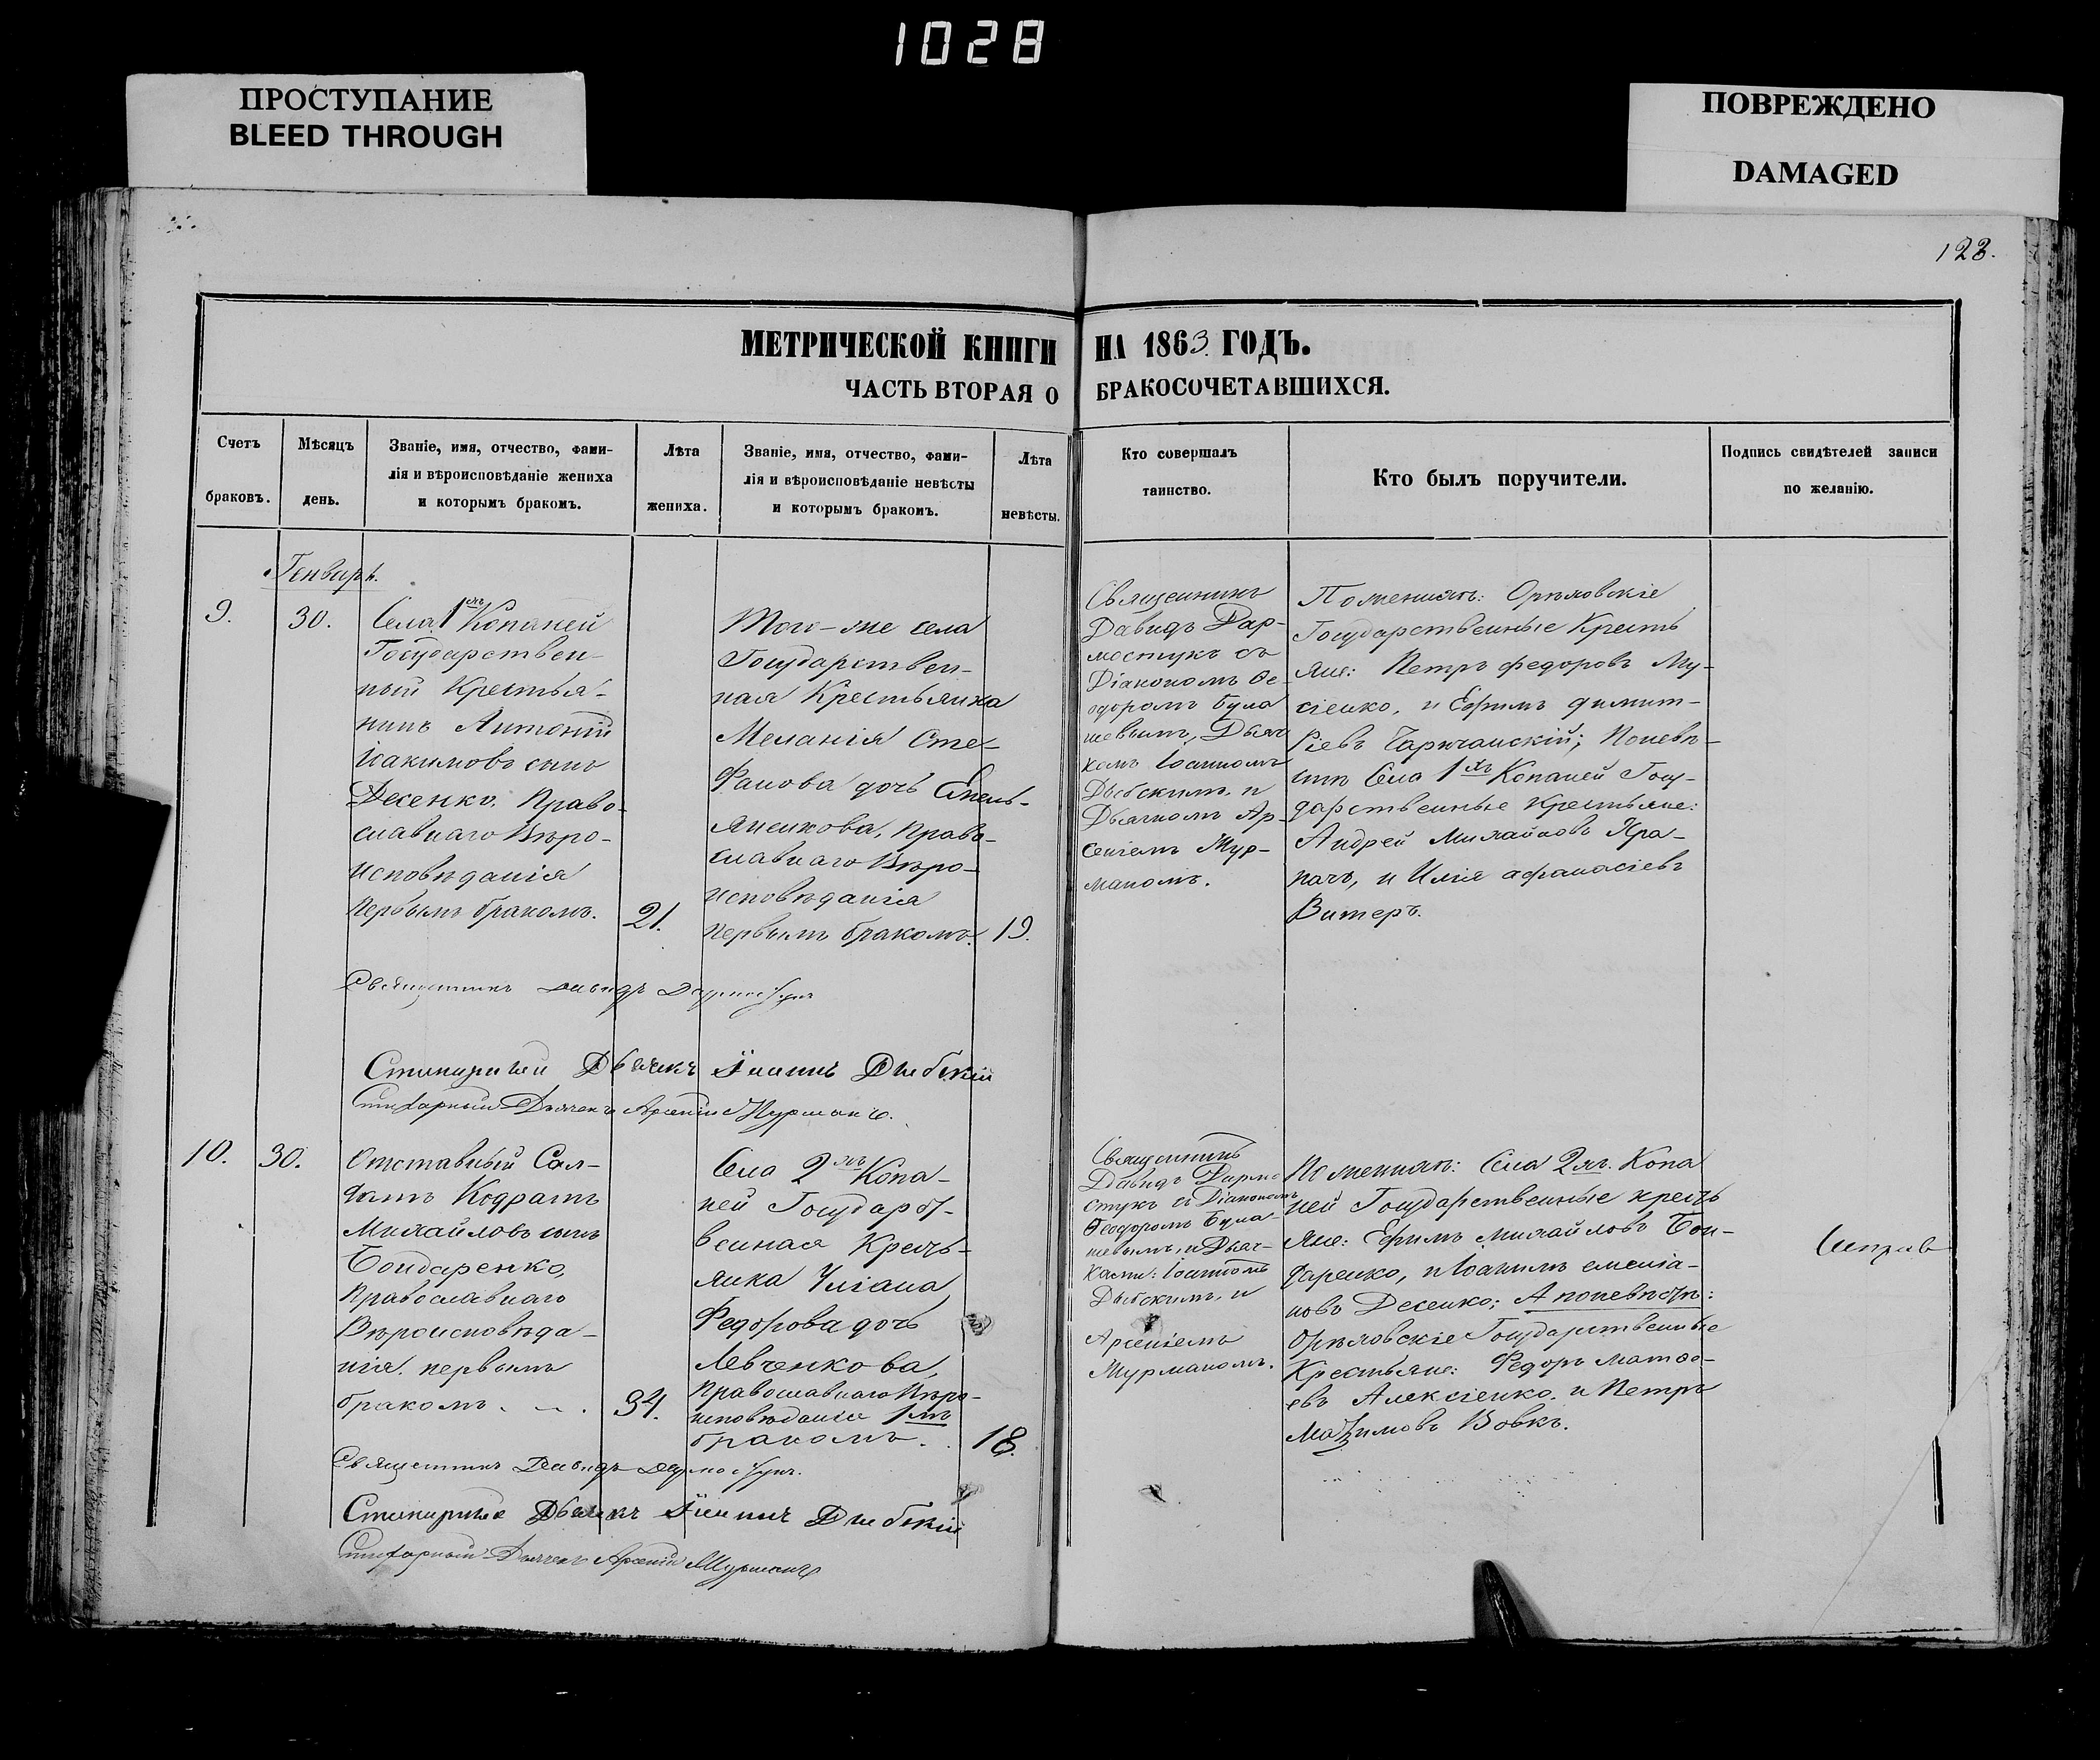 1028
ПРОСТУПАНИЕ
BLEED THROUGH
ПОВРЕЖДЕНО
DAMAGED
123.
МЕТРИЧЕСКОЙ КНИГИ НА 1863 ГОДЪ.
ЧАСТЬ ВТОРАЯ О БРАКОСОЧЕТАВШИХСЯ.
Счетъ
браковъ.
Мѣсяцъ
день.
Званіе, имя, отчество, фами-
лія и вѣроисповѣданіе жениха
и которымъ бракомъ.
Лѣта
жениха.
Званіе, имя, отчество, фами-
лія и вѣроисповѣданіе невѣсты
и которымъ бракомъ.
Лѣта
невѣсты.
Кто совершалъ
таинство.
Кто былъ поручители.
Подпись свидѣтелей записи
по желанію.
Генварь.
9.
30.
Села 1хъ Копаней
Государствен-
ный Крестья-
нинъ Антоній
Іоакимовъ сынъ
Десенко. Право-
славнаго Вѣро-
исповѣданія
первымъ бракомъ.
21.
Того-же села
Государствен-
ная Крестьянка
Меланія Сте-
фанова дочь Емель-
яненкова, Право-
славнаго Вѣро-
исповѣданія
первымъ бракомъ.
19.
Священникъ
Давидъ Дар-
мостукъ съ
Діакономъ Ѳе-
одоромъ Була
шевымъ, Дьяч
комъ Іоанномъ
Дибскимъ, и
Дьячкомъ Ар-
сеніемъ Мур-
маномъ.
По женихѣ: Орѣловскіе
Государственные Кресть
яне: Петръ Федоровъ Му-
сіенко, и Ефимъ Димит-
ріевъ Чаричанскій; По невѣ-
стѣ Села 1хъ Копаней Госу-
дарственные Крестьяне:
Андрей Михайловъ
и Илія Афанасіевъ
Витеръ.
Священникъ Давидъ Дармостукъ
Стихарный Дьячекъ Іоаннъ Дибскій
Стихарный Дьячекъ Арсеній Мурманъ.
10.
30.
Отставный Сол-
датъ Кодратъ
Михайловъ сынъ
Бондаренко,
Православнаго
Вѣроисповѣда-
нія. первымъ
бракомъ . - .
34.
Села 2хъ Копа-
ней Государст-
венная Кресть-
янка Уліана
Федорова дочь
Левченкова,
Православнаго Вѣро-
исповѣданія 1мъ
бракомъ. .
18.
Священникъ
Давидъ Дармо
стукъ съ Діакономъ
Ѳеодоромъ Була-
шевымъ, и Дьяч-
ками: Іоанномъ
Дибскимъ, и
Арсеніемъ
Мурманомъ.
По женихѣ: Села 2хъ. Копа
ней Государственные кресть
яне: Ефимъ Михайловъ Бон-
даренко, и Іоакимъ
новъ Десенко; А по невѣстѣ:
Орѣловскіе Государственные
Крестьяне: Федоръ Матѳе-
евъ Алексіенко. и Петръ
Максимовъ Вовкъ.
Священникъ Давидъ Дармостукъ.
Стихарный Дьячекъ Іоаннъ Дибскій
Стихарный Дьячекъ Арсеній Мурманъ